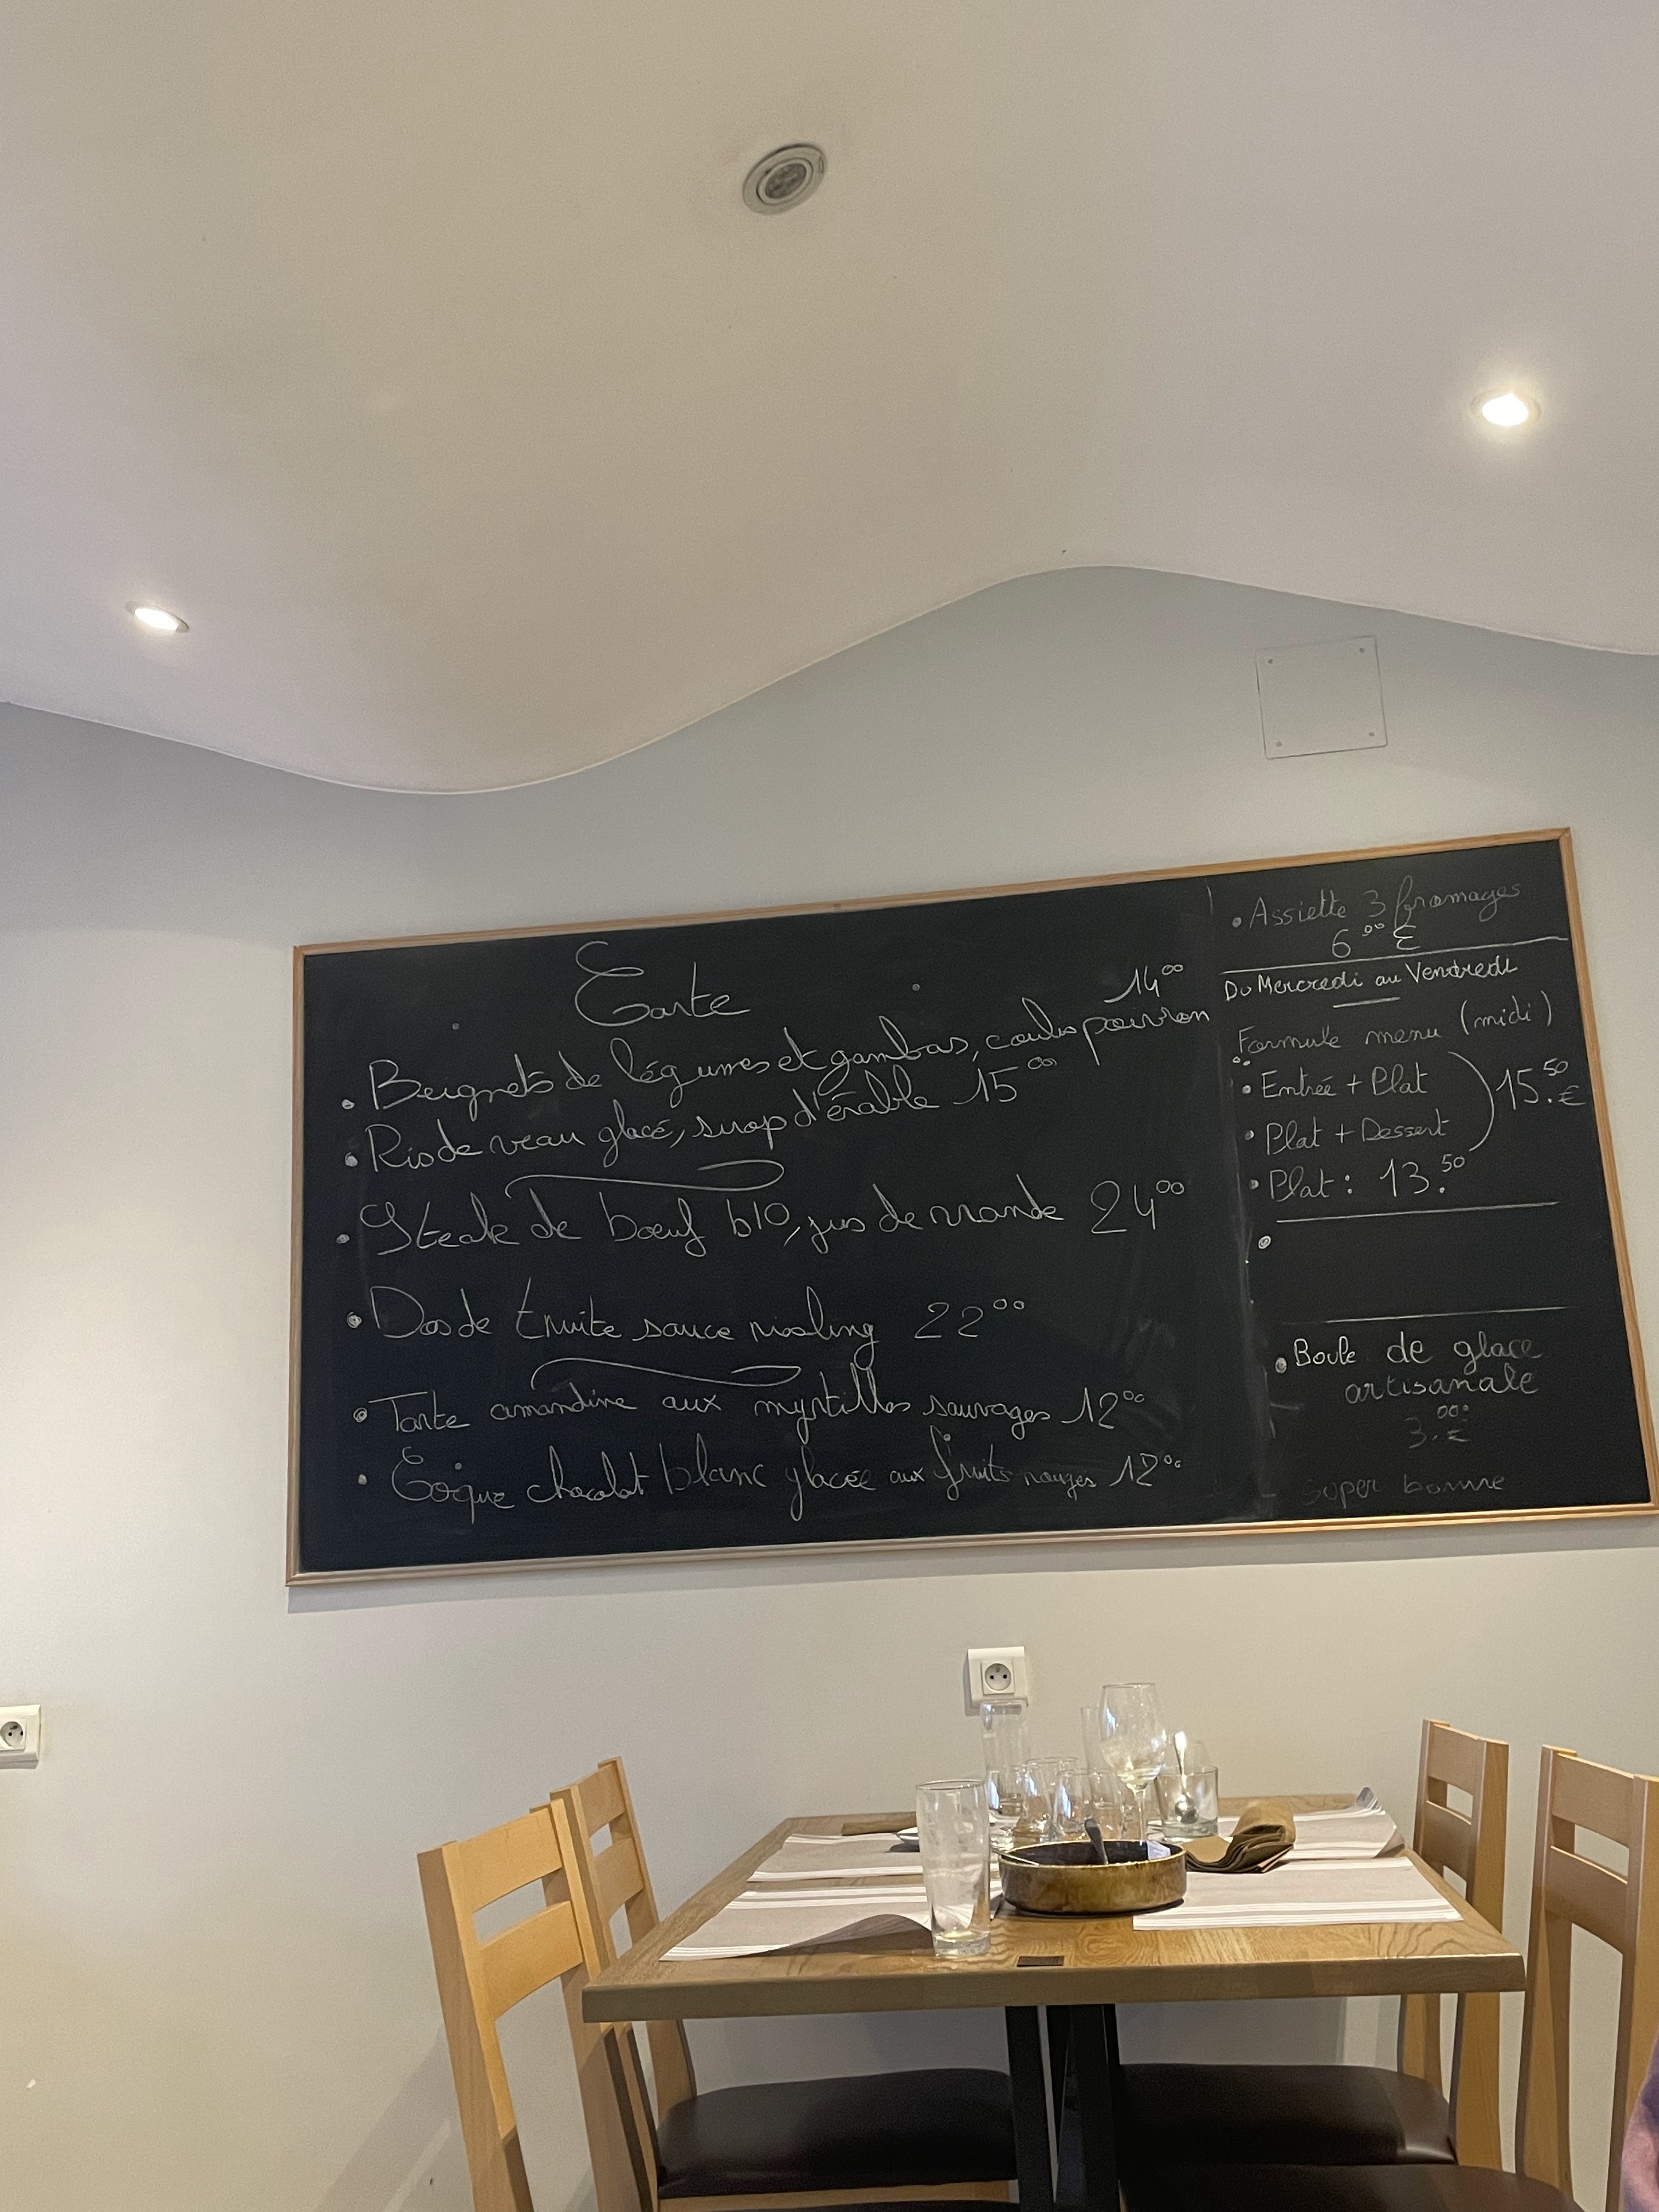 Carte
14⁰⁰
• Beignets de légumes et gambas, coulis poivron
• Ris de veau glacé, sirop d'érable 15⁰⁰
• Steak de boeuf bio, jus de viande 24⁰⁰
• Dos de truite sauce riesling 22⁰⁰
• Tarte amandine aux myrtilles sauvages 12⁰⁰
• Coque chocolat blanc glacée aux fruits rouges 12⁰⁰
• Assiette 3 fromages
6⁰⁰ €
Du Mercredi au Vendredi
Formule menu (midi)
• Entrée + Plat
15.⁵⁰ €
• Plat + Dessert
• Plat : 13.⁵⁰
• Boule de glace
artisanale
3.⁰⁰ €
Super bonne